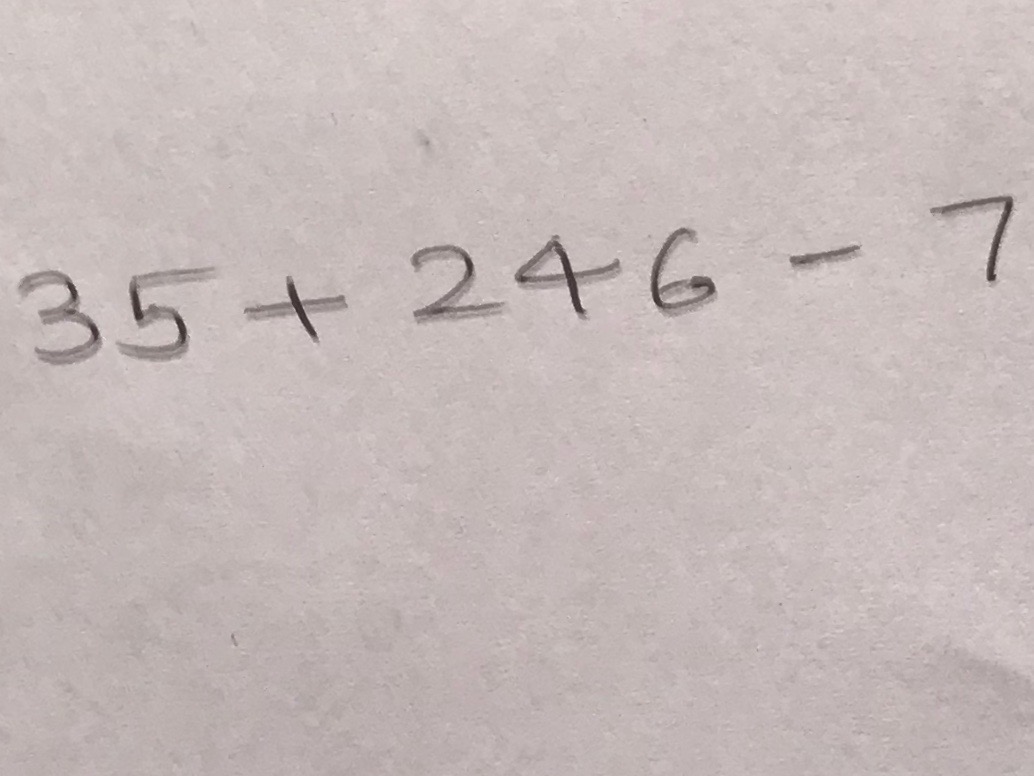 35 + 246 - 7